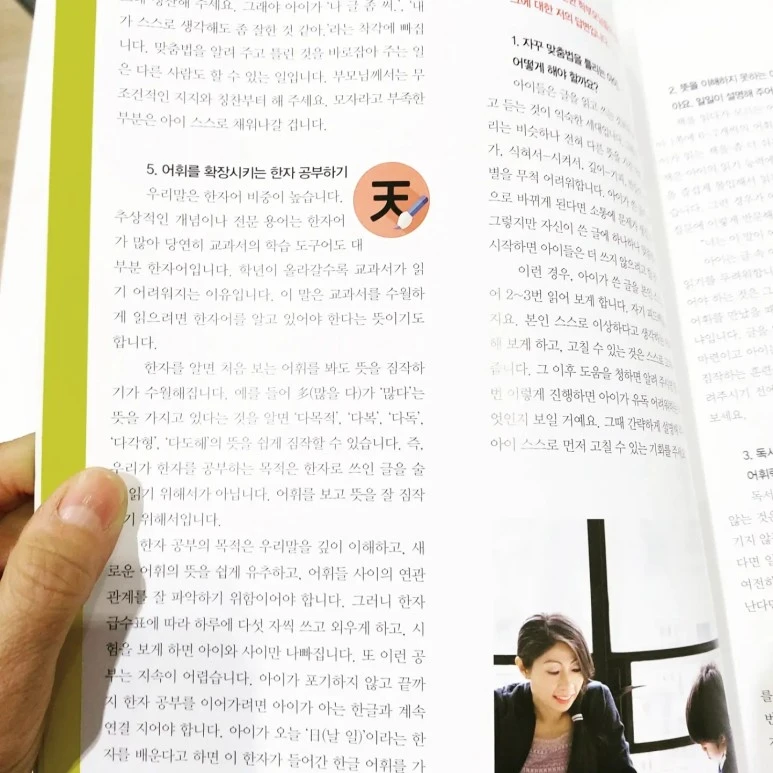 게 칭찬해 주세요. 그래야 아이가 '나 글 좀 써.', '내
가 스스로 생각해도 좀 잘한 것 같아.'라는 착각에 빠집
니다. 맞춤법을 알려 주고 틀린 것을 바로잡아 주는 일
은 다른 사람도 할 수 있는 일입니다. 부모님께서는 무
조건적인 지지와 칭찬부터 해 주세요. 모자라고 부족한
부분은 아이 스스로 채워나갈 겁니다.
5. 어휘를 확장시키는 한자 공부하기
天
우리말은 한자어 비중이 높습니다.
추상적인 개념이나 전문 용어는 한자어
가 많아 당연히 교과서의 학습 도구어도 대
부분 한자어입니다. 학년이 올라갈수록 교과서가 읽
기 어려워지는 이유입니다. 이 말은 교과서를 수월하
게 읽으려면 한자어를 알고 있어야 한다는 뜻이기도
합니다.
한자를 알면 처음 보는 어휘를 봐도 뜻을 짐작하
기가 수월해집니다. 예를 들어 多(많을 다)가 '많다'는
뜻을 가지고 있다는 것을 알면 '다목적', '다복', '다독',
'다각형', '다도해'의 뜻을 쉽게 짐작할 수 있습니다. 즉,
우리가 한자를 공부하는 목적은 한자로 쓰인 글을 술
읽기 위해서가 아닙니다. 어휘를 보고 뜻을 잘 짐작
기 위해서입니다.
한자 공부의 목적은 우리말을 깊이 이해하고, 새
로운 어휘의 뜻을 쉽게 유추하고, 어휘들 사이의 연관
관계를 잘 파악하기 위함이어야 합니다. 그러니 한자
급수표에 따라 하루에 다섯 자씩 쓰고 외우게 하고, 시
험을 보게 하면 아이와 사이만 나빠집니다. 또 이런 공
부는 지속이 어렵습니다. 아이가 포기하지 않고 끝까
지 한자 공부를 이어가려면 아이가 아는 한글과 계속
연결 지어야 합니다. 아이가 오늘 '日(날 일)'이라는 한
자를 배운다고 하면 이 한자가 들어간 한글 어휘를 가
그에 대한 저의 답변입니다
1. 자꾸 맞춤법을 틀리는 아이,
어떻게 해야 할까요?
아이들은 글을 읽고 쓰는
고 듣는 것이 익숙한 세대입니다.
리는 비슷하나 전혀 다른 뜻을
가, 식혀서~시켜서, 깊이~
별을 무척 어려워합니다. 아이가
으로 바뀌게 된다면 소통에 문제가
그렇지만 자신이 쓴 글에 하나하나
시작하면 아이들은 더 쓰지 않으려고
이런 경우, 아이가 쓴 글을
어 2~3번 읽어 보게 합니다.
지요. 본인 스스로 이상하다고 생각하는
해 보게 하고, 고칠 수 있는 것은 스스로
줍니다. 그 이후 도움을 청하면 알려
번 이렇게 진행하면 아이가 유독 어려워하는
엇인지 보일 거예요. 그때 간략하게 설명해
아이 스스로 먼저 고칠 수 있는 기회를 주세요
2. 뜻을 이해하지 못하는
아요. 일일이 설명해 주어
읽기를 두려워합니다
어야 하는 것은 그
어휘를 만났을 때
냐입니다. 글을
마련이고 아이는
짐작하는 훈련
려주시기 전에
보세요.
3. 독서
어휘력
독서
않는 것은
기지 않
다면 일
여전히
난다면
를